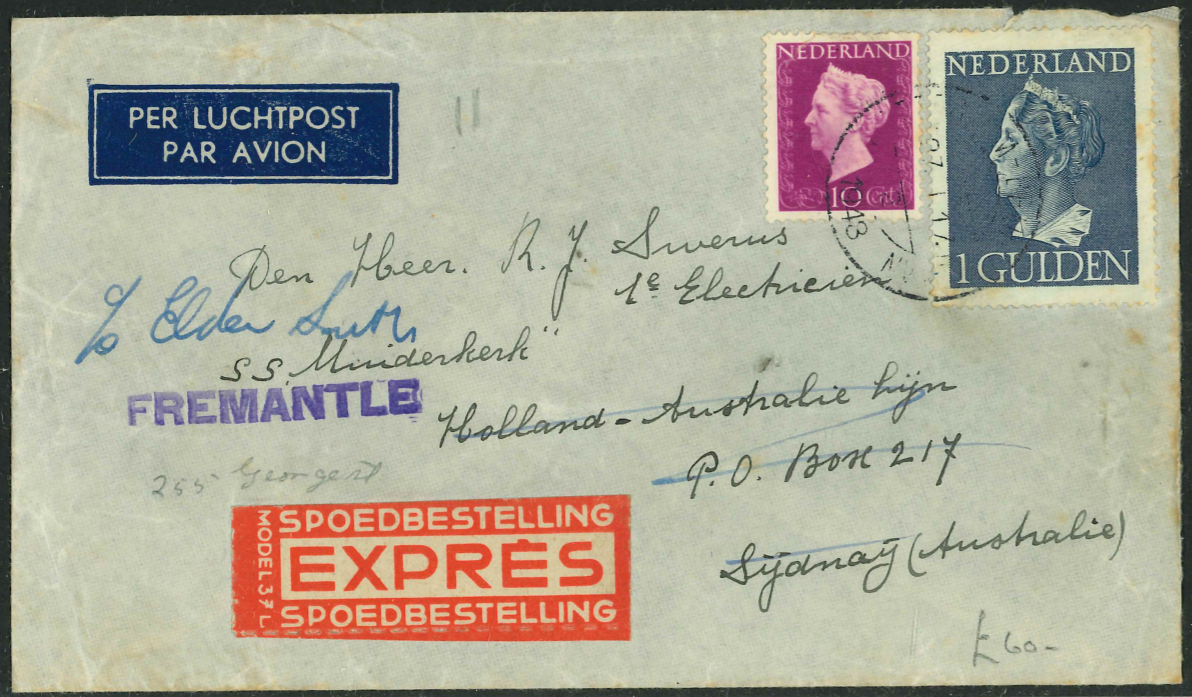 PER LUCHTPOST
PAR AVION
11
NEDERLAND
10 Ct
NEDERLAND
1 GULDEN
1948
Den Heer. R. J. Swerus
1e Electricien
c/o Elder Smith
S.S. „Muiderkerk"
FREMANTLE
Holland - Australie lijn
255 Georgest
P.O. Box 217
MODEL 37 L
SPOEDBESTELLING
EXPRÈS
SPOEDBESTELLING
Sÿdnaÿ (Australie)
£60-